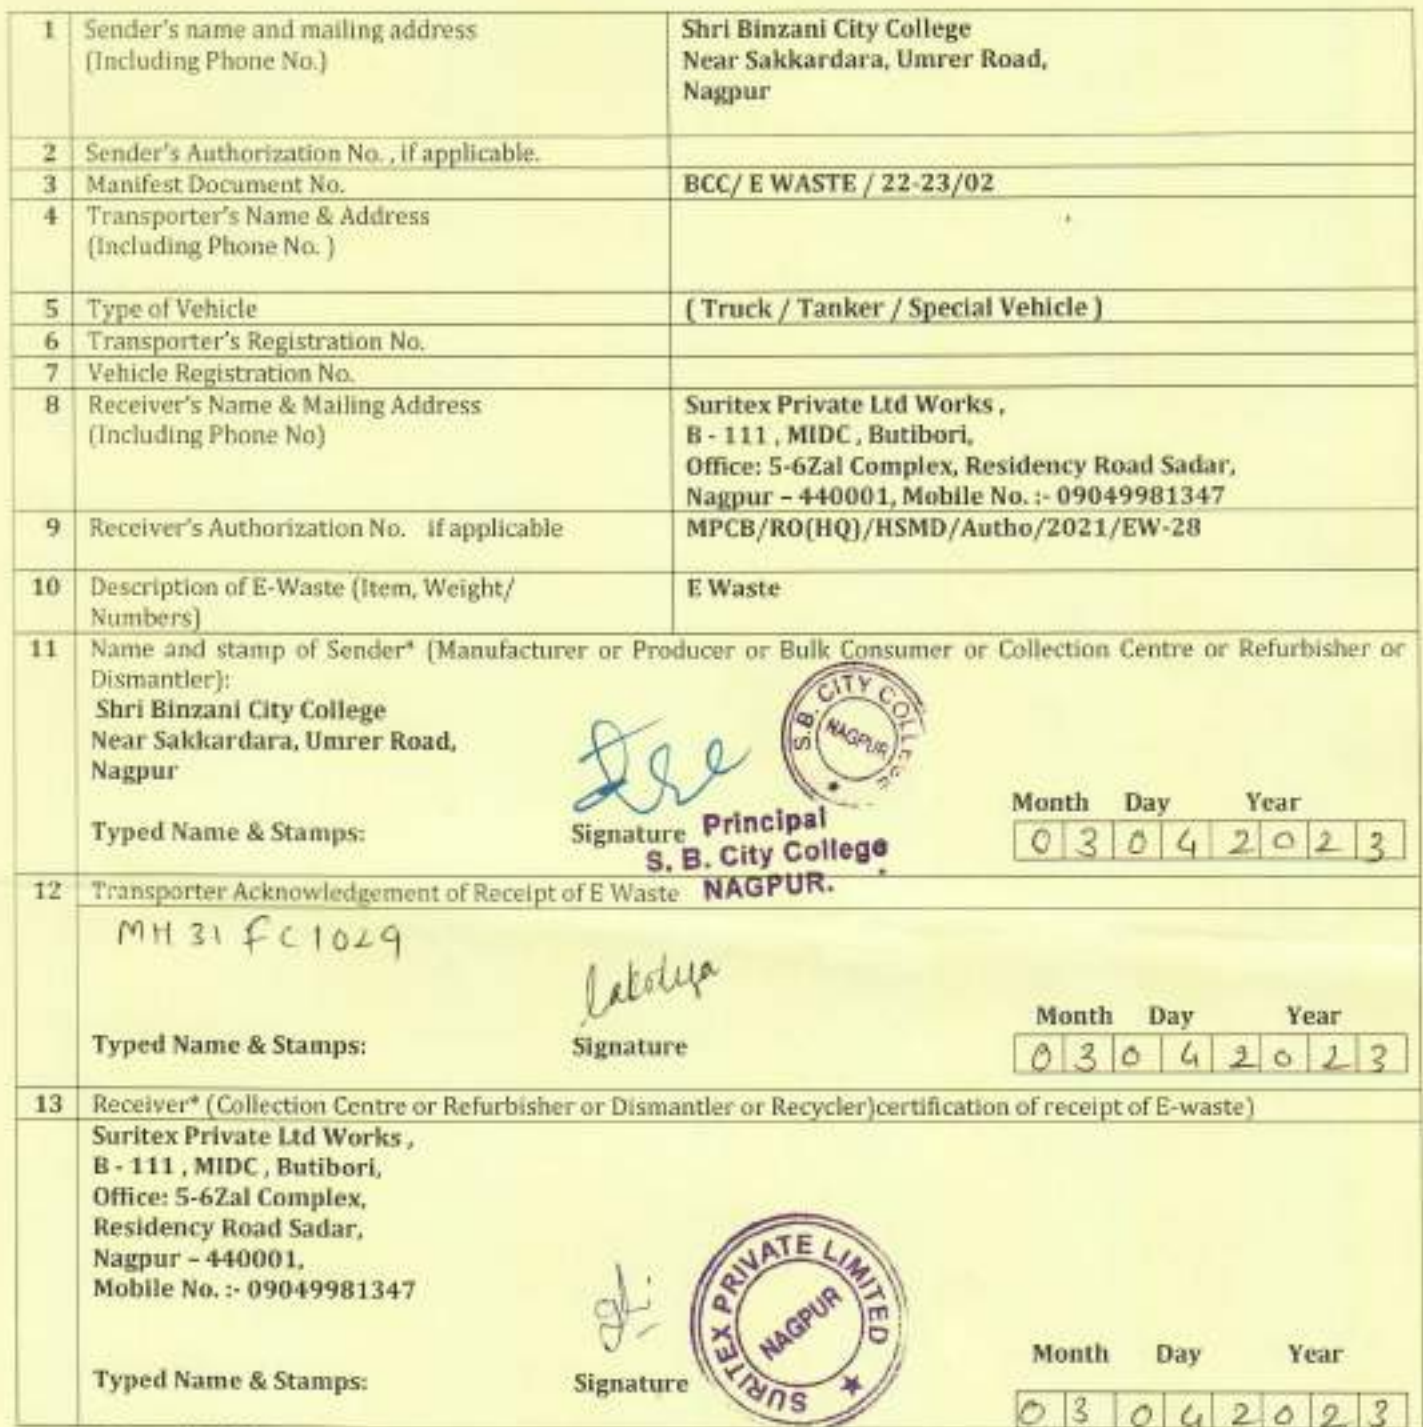 1 Sender's name and mailing address Shri Binzani City College
(Including Phone No.) Near Sakkardara, Umrer Road,
Nagpur
2 Sender's Authorization No. , if applicable.
3 Manifest Document No. BCC/ E WASTE / 22-23/02
4 Transporter's Name & Address
(Including Phone No. )
5 Type of Vehicle ( Truck / Tanker / Special Vehicle )
6 Transporter's Registration No.
7 Vehicle Registration No.
8 Receiver's Name & Mailing Address Suritex Private Ltd Works ,
(Including Phone No) B - 111 , MIDC , Butibori,
Office: 5-6Zal Complex, Residency Road Sadar,
Nagpur – 440001, Mobile No. :- 09049981347
9 Receiver's Authorization No. if applicable MPCB/RO(HQ)/HSMD/Autho/2021/EW-28
10 Description of E-Waste (Item, Weight/ E Waste
Numbers)
11 Name and stamp of Sender* (Manufacturer or Producer or Bulk Consumer or Collection Centre or Refurbisher or
Dismantler):
Shri Binzani City College
Near Sakkardara, Umrer Road,
Nagpur
S.B. CITY COLLEGE
NAGPUR
Month Day Year
Typed Name & Stamps: Signature Principal 0 3 0 4 2 0 2 3
S. B. City College
NAGPUR.
12 Transporter Acknowledgement of Receipt of E Waste
MH 31 FC 1029
Month Day Year
Typed Name & Stamps: Signature 0 3 0 4 2 0 2 3
13 Receiver* (Collection Centre or Refurbisher or Dismantler or Recycler)certification of receipt of E-waste)
Suritex Private Ltd Works ,
B - 111 , MIDC , Butibori,
Office: 5-6Zal Complex,
Residency Road Sadar,
Nagpur – 440001,
Mobile No. :- 09049981347
SURITEX PRIVATE LIMITED
NAGPUR
Month Day Year
Typed Name & Stamps: Signature 0 3 0 4 2 0 2 3